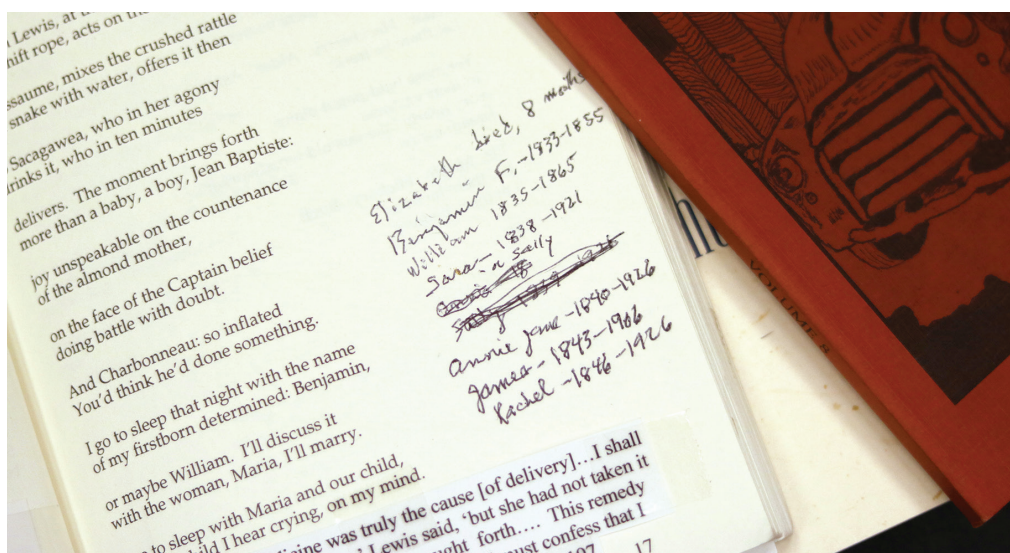 Lewis, at
hift rope, acts on the
ssaume, mixes the crushed rattle
snake with water, offers it then
Sacagawea, who in her agony
rinks it, who in ten minutes
delivers. The moment brings forth
more than a baby, a boy, Jean Baptiste:
joy unspeakable on the countenance
of the almond mother,
on the face of the Captain belief
doing battle with doubt.
And Charbonneau: so inflated
You'd think he'd done something.
I go to sleep that night with the name
of my firstborn determined: Benjamin,
or maybe William. I'll discuss it
with the woman, Maria, I'll marry.
to sleep with Maria and our child,
child I hear crying, on my mind.
Elizabeth died, 8 months
Benjamin F. -1833-1855
William 1835-1865
Sara- 1838 -1921
Sally
Annie Jane -1840-1926
James - 1843-1906
Rachel -1846 -1926
icine was truly the cause [of delivery]...I shall
Lewis said, 'but she had not taken it
ught forth.... This remedy
ust confess that I
107 17
VOLUME 8